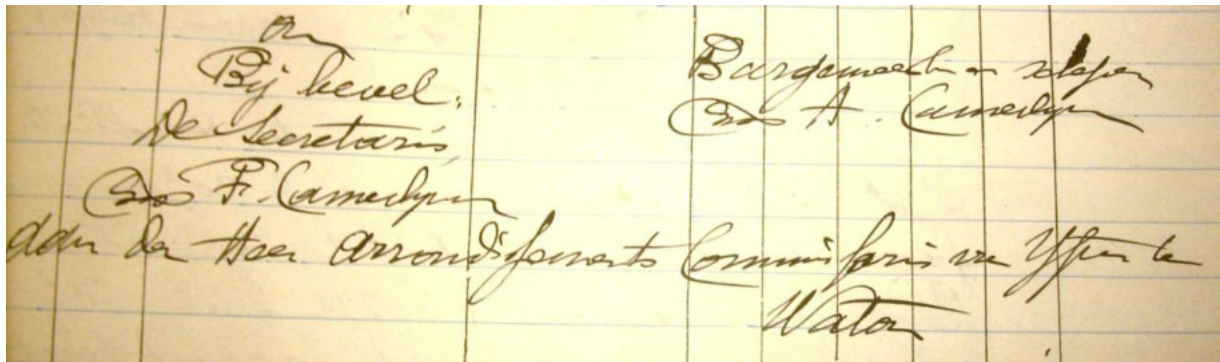 Bij bevel.
De Secretaris
F. Camerlynck
Burgemeester en schepen
A. Camerlynck
Aan den Heer Arrondissements Commissaris van Yper te
Watou